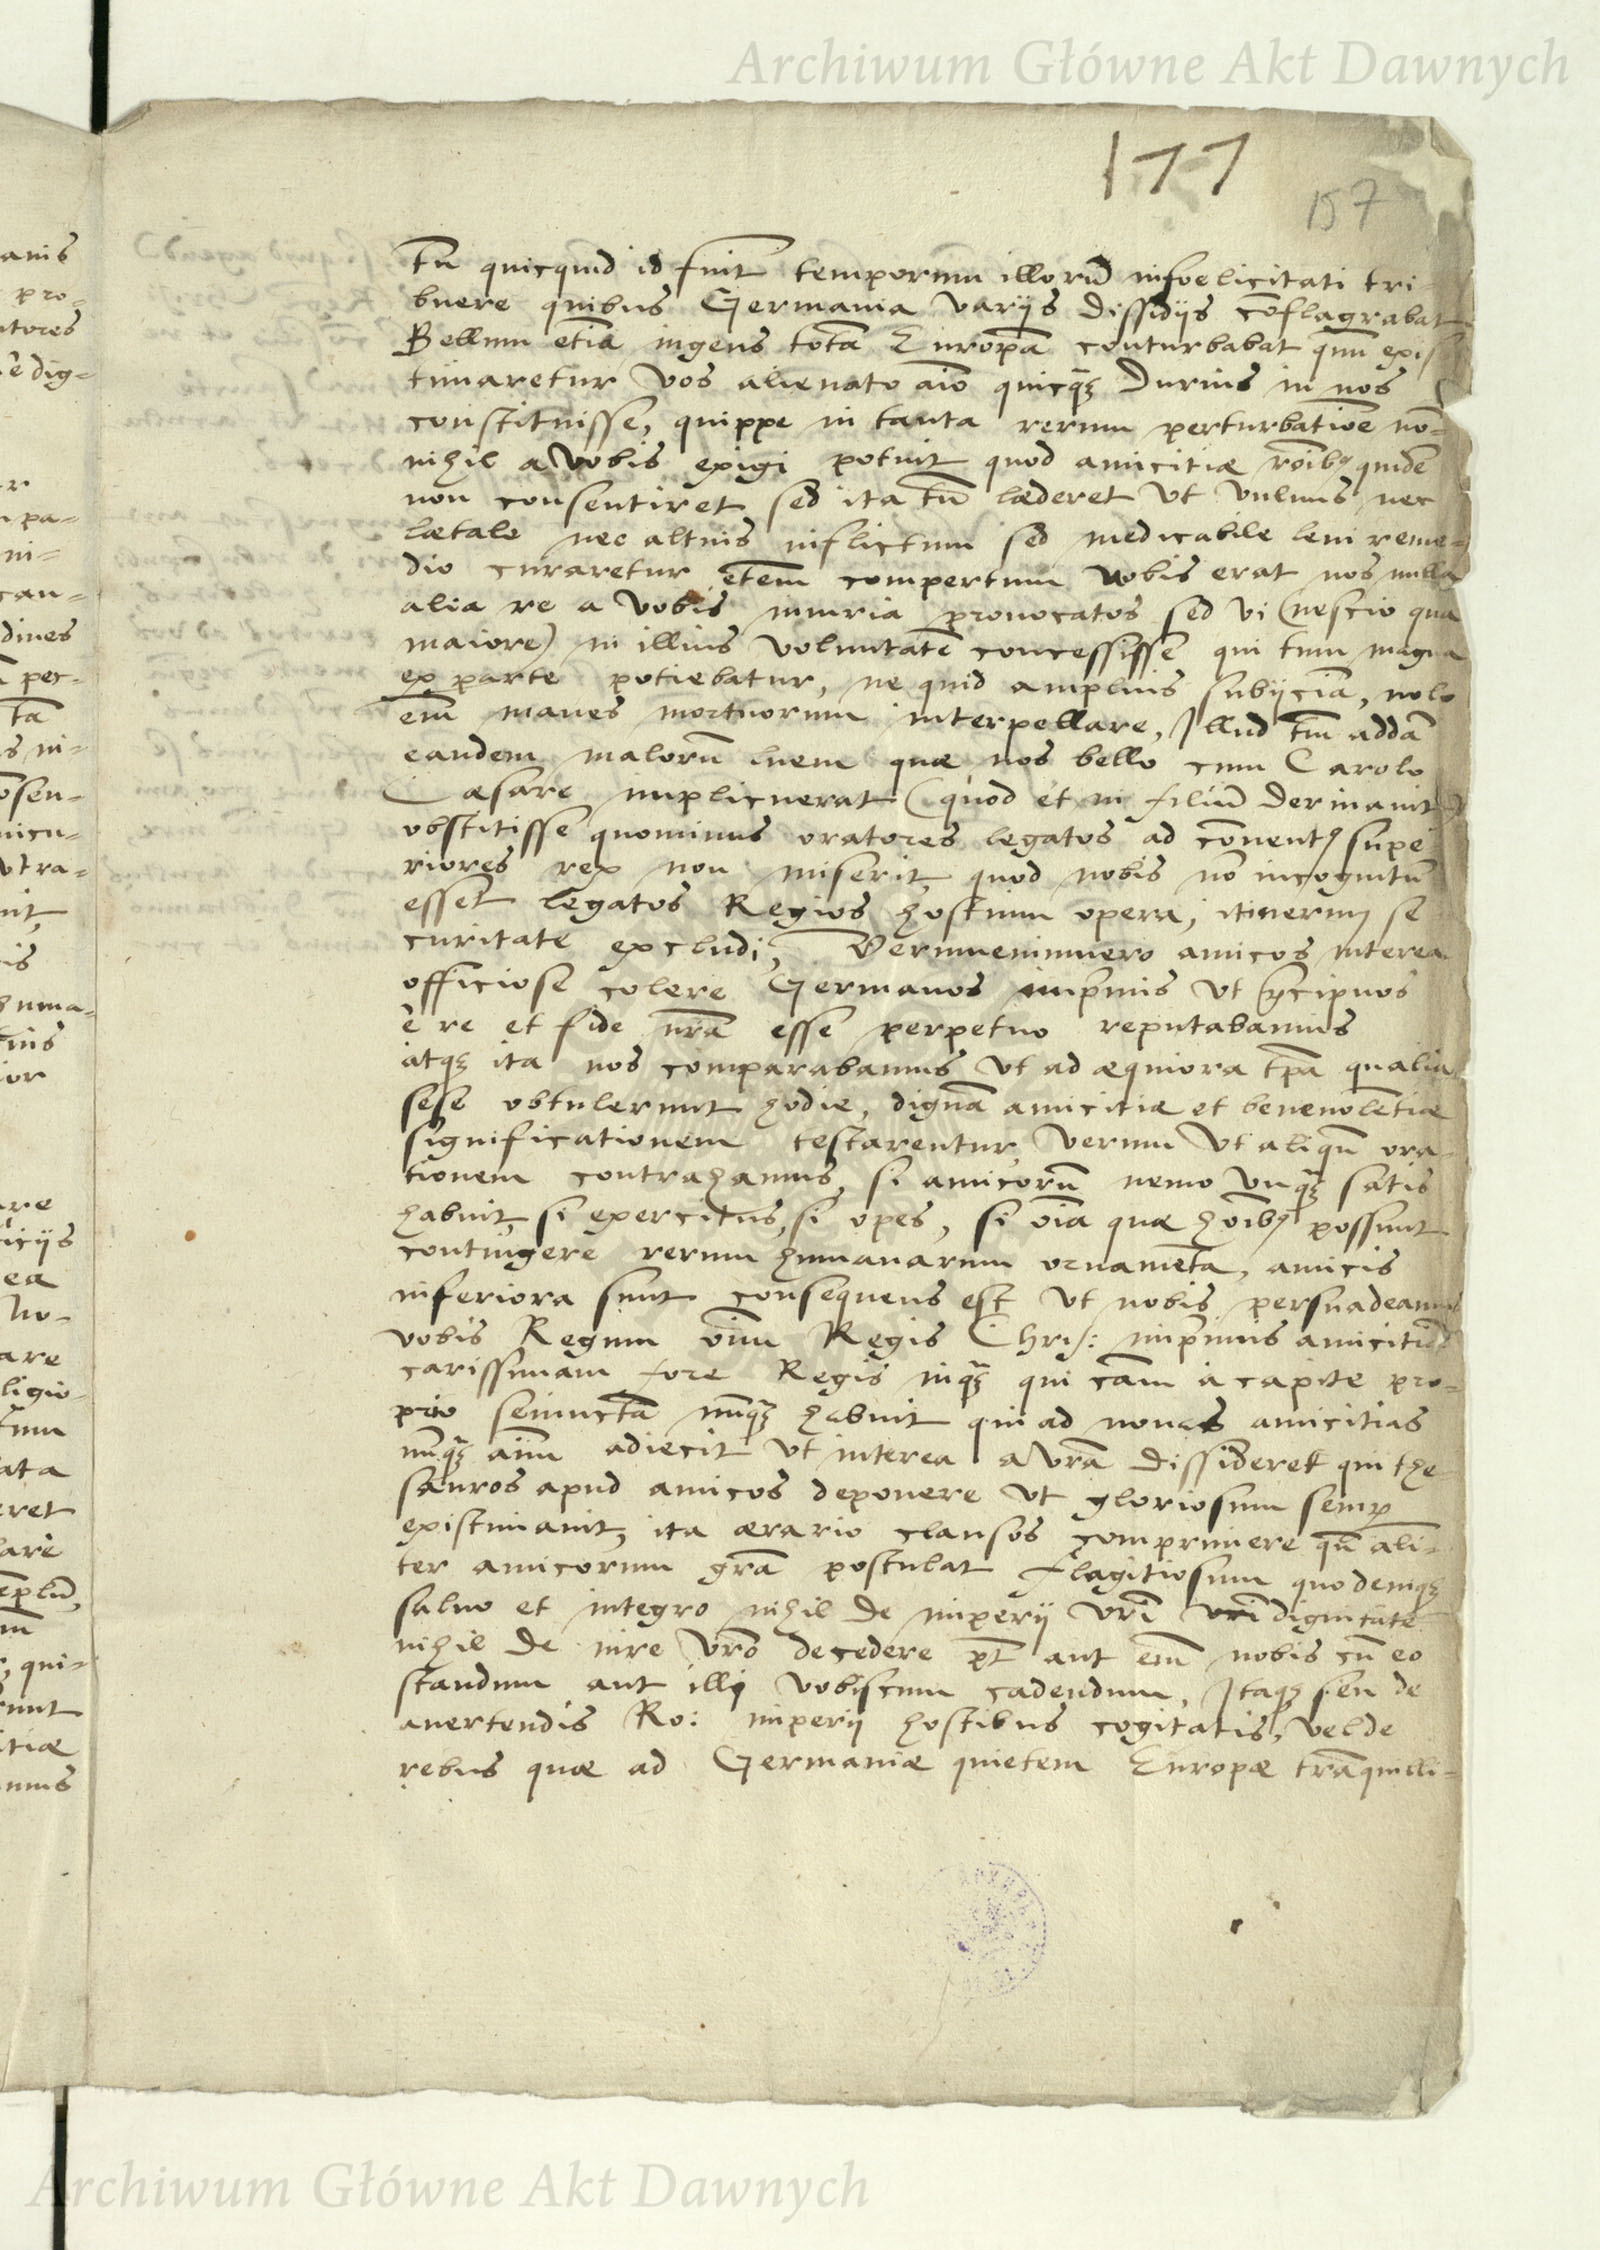 Archiwum Główne Akt Dawnych
177
157
tn̄ quicquid id fuit temporum illorū infoelicitati tri-
buere quibus Germania varijs dissidijs cōflagrabat
Bellum etiā ingens totā Europā conturbabat quū exis
timaretur vos alienato aīo quicq̃ȝ durius in nos
constituisse, quippe in tanta rerum perturbatiōe nō-
nihil a vobis exigi potuit quod amicitiæ rōibꝯ quidē
non consentiret sed ita tn̄ læderet ut vulnus nec
lætale nec altius inflictum sed medicabile leni reme-
dio curaretur etem̄ compertum uobis erat nos nulla
alia re a vobis iniuria prouocatos sed vi (nescio qua
maiore) in illius voluntatē concessisse qui tum magna
ex parte potiebatur, ne quid amplius subijciā, nolo
em̄ manes mortuorum interpellare, Illud tm̄ addā
eandem malorū luem quæ nos bello cum Carolo
Cæsare implicuerat (quod et in filiū deriuauit)
obstitisse quominus oratores legatos ad cōuentꝯ supe
riores rex non miserit quod nobis nō incognitū
esset legatos Regios hostium opera, itinerum se
curitate excludi, Verumenimuero amicos interea
officiose colere Germanos imp̄mis ut p̄cipuos
è re et fide nr̄a esse perpetuo reputabamus
atqȝ ita nos comparabamus ut ad æquiora tp̄a qualia
sese obtulerunt hodie, dignā amicitiæ et beneuolētiæ
significationem testarentur, verum ut aliqn̄ ora-
tionem contrahamus, si amicorū nemo vnq̃ȝ satis
habuit, si exercitus, si opes, si oīa quæ hoībꝯ possunt
contingere rerum humanarum ornamēta, amicis
inferiora sunt consequens est ut nobis persuadeamus
vobis Regum oīm Regis Chris: imp̄mis amicitiā
carissimam fore Regis inq̃ȝ qui cām à capite pro-
prio seiunctā nūq̃ȝ habuit qui ad nouas amicitias
nūq̃ȝ aīm adiecit ut interea a vr̄a dissideret qui the
sauros apud amicos deponere ut gloriosum semp̄
existimauit, ita ærario clausos comprimere qn̄ ali-
ter amicorum gr̄a postulat flagitiosum quo deniqȝ
saluo et integro nihil de imperij vr̄i vr̄i dignitate
nihil de iure vr̄o decedere pt̄ aut em̄ nobis cū eo
standum aut illi vobiscum cadendum, Itaqȝ seu de
auertendis Ro: imperij hostibus cogitatis, vel de
rebus quæ ad Germaniæ quietem Europæ trāquilli-
Archiwum Główne Akt Dawnych